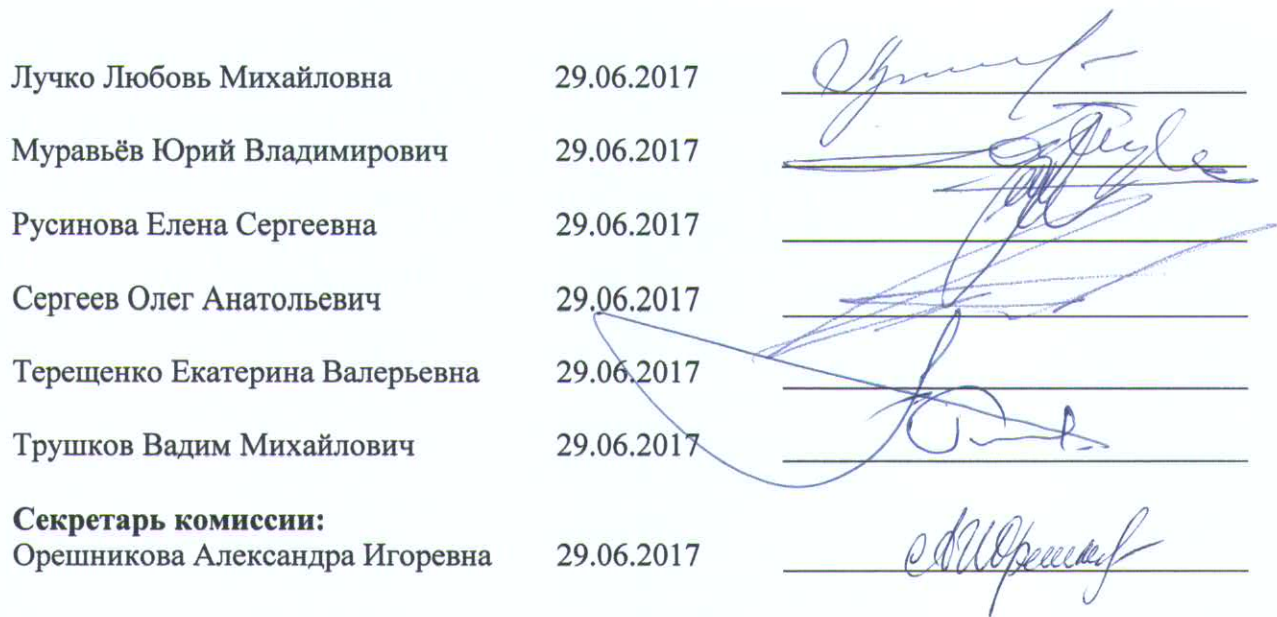 Лучко Любовь Михайловна 29.06.2017
Муравьёв Юрий Владимирович 29.06.2017
Русинова Елена Сергеевна 29.06.2017
Сергеев Олег Анатольевич 29.06.2017
Терещенко Екатерина Валерьевна 29.06.2017
Трушков Вадим Михайлович 29.06.2017
Секретарь комиссии:
Орешникова Александра Игоревна 29.06.2017